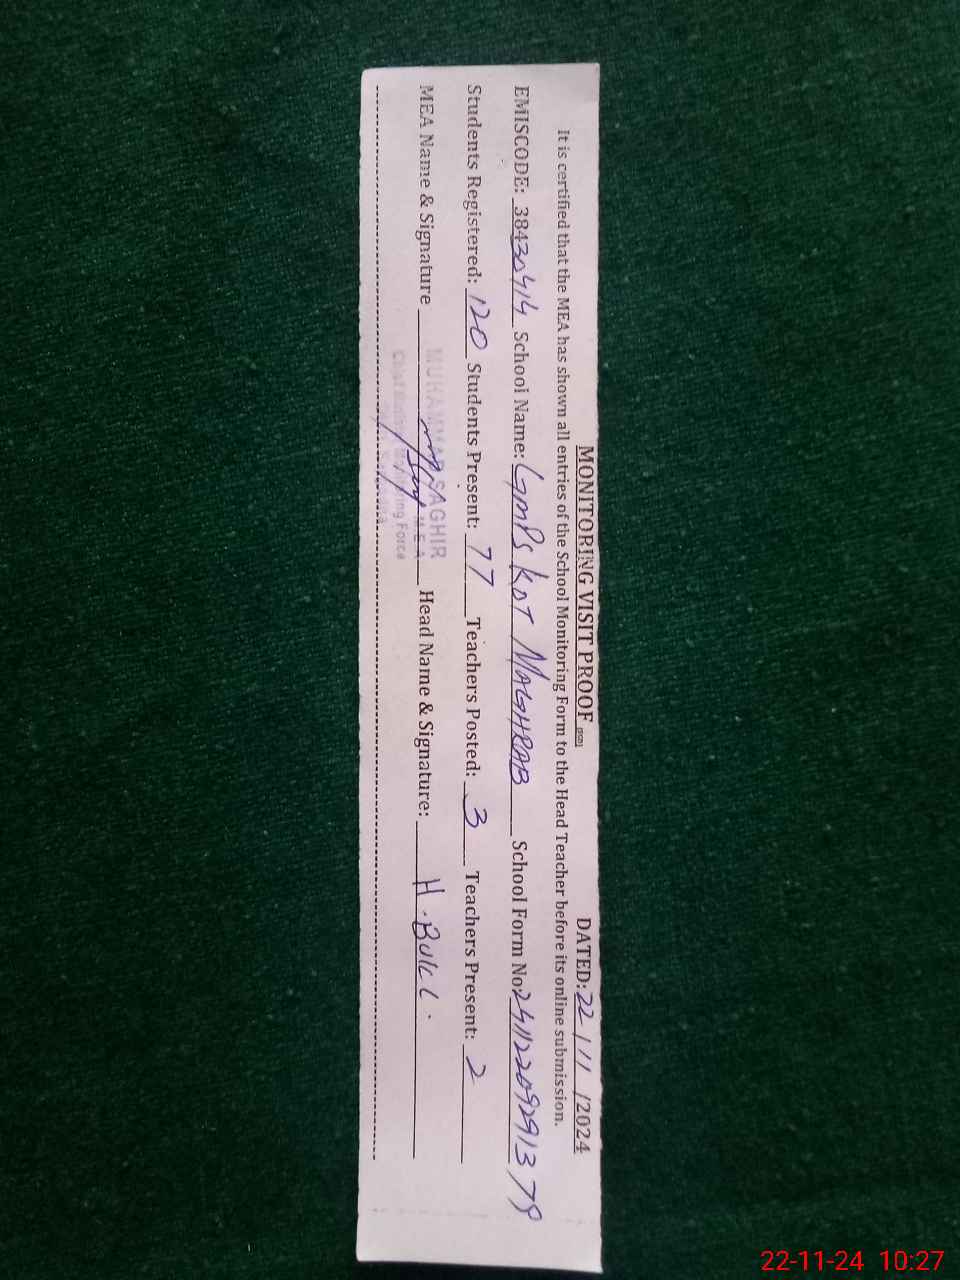 MONITORING VISIT PROOF DATED: 22/11/2024
It is certified that the MEA has shown all entries of the School Monitoring Form to the Head Teacher before its online submission.
EMISCODE: 38430414 School Name: GMPS KOT MAGHRAB School Form No:
Students Registered: 120 Students Present: 77 Teachers Posted: 3 Teachers Present: 2
MEA Name & Signature Head Name & Signature: H.
MUHAMMAD SAGHIR
M E A
22-11-24 10:27